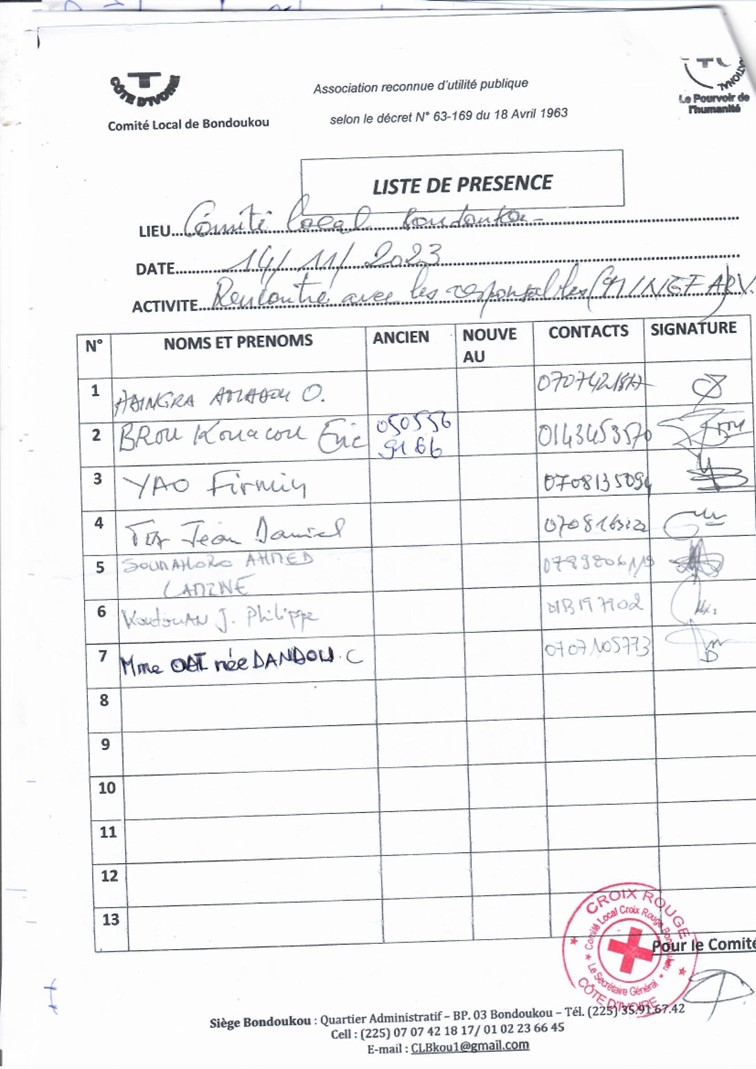 CÔTE D'IVOIRE
Comité Local de Bondoukou
Association reconnue d'utilité publique
selon le décret N° 63-169 du 18 Avril 1963
Le Pouvoir de
l'humanité
LISTE DE PRESENCE
LIEU Comité local Bondoukou
DATE 14/11/2023
ACTIVITE Rencontre avec les responsables
N° NOMS ET PRENOMS ANCIEN NOUVE CONTACTS SIGNATURE
AU
1 O. 0707421817
2 BROU Kouacou Eric 050556 0143453570
9166
3 YAO Firmin 070813509
4 Jean Daniel
5 AHMED
6 J. Philippe
7 Mme née DANDOU.C 0707105773
8
9
10
11
12
13
CROIX ROUGE
Comité Local Croix Rouge
Le Secrétaire Général
CÔTE D'IVOIRE
Pour le Comité
Siège Bondoukou : Quartier Administratif – BP. 03 Bondoukou – Tél. (225) 35.91.67.42
Cell : (225) 07 07 42 18 17/ 01 02 23 66 45
E-mail : CLBkou1@gmail.com